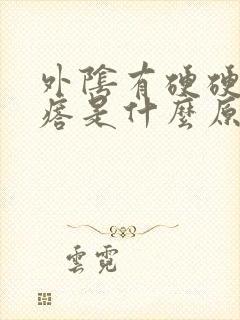 外陰有硬硬
痞是什麼原
雲霓